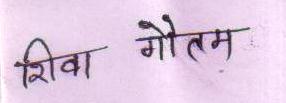 शिवा गौतम